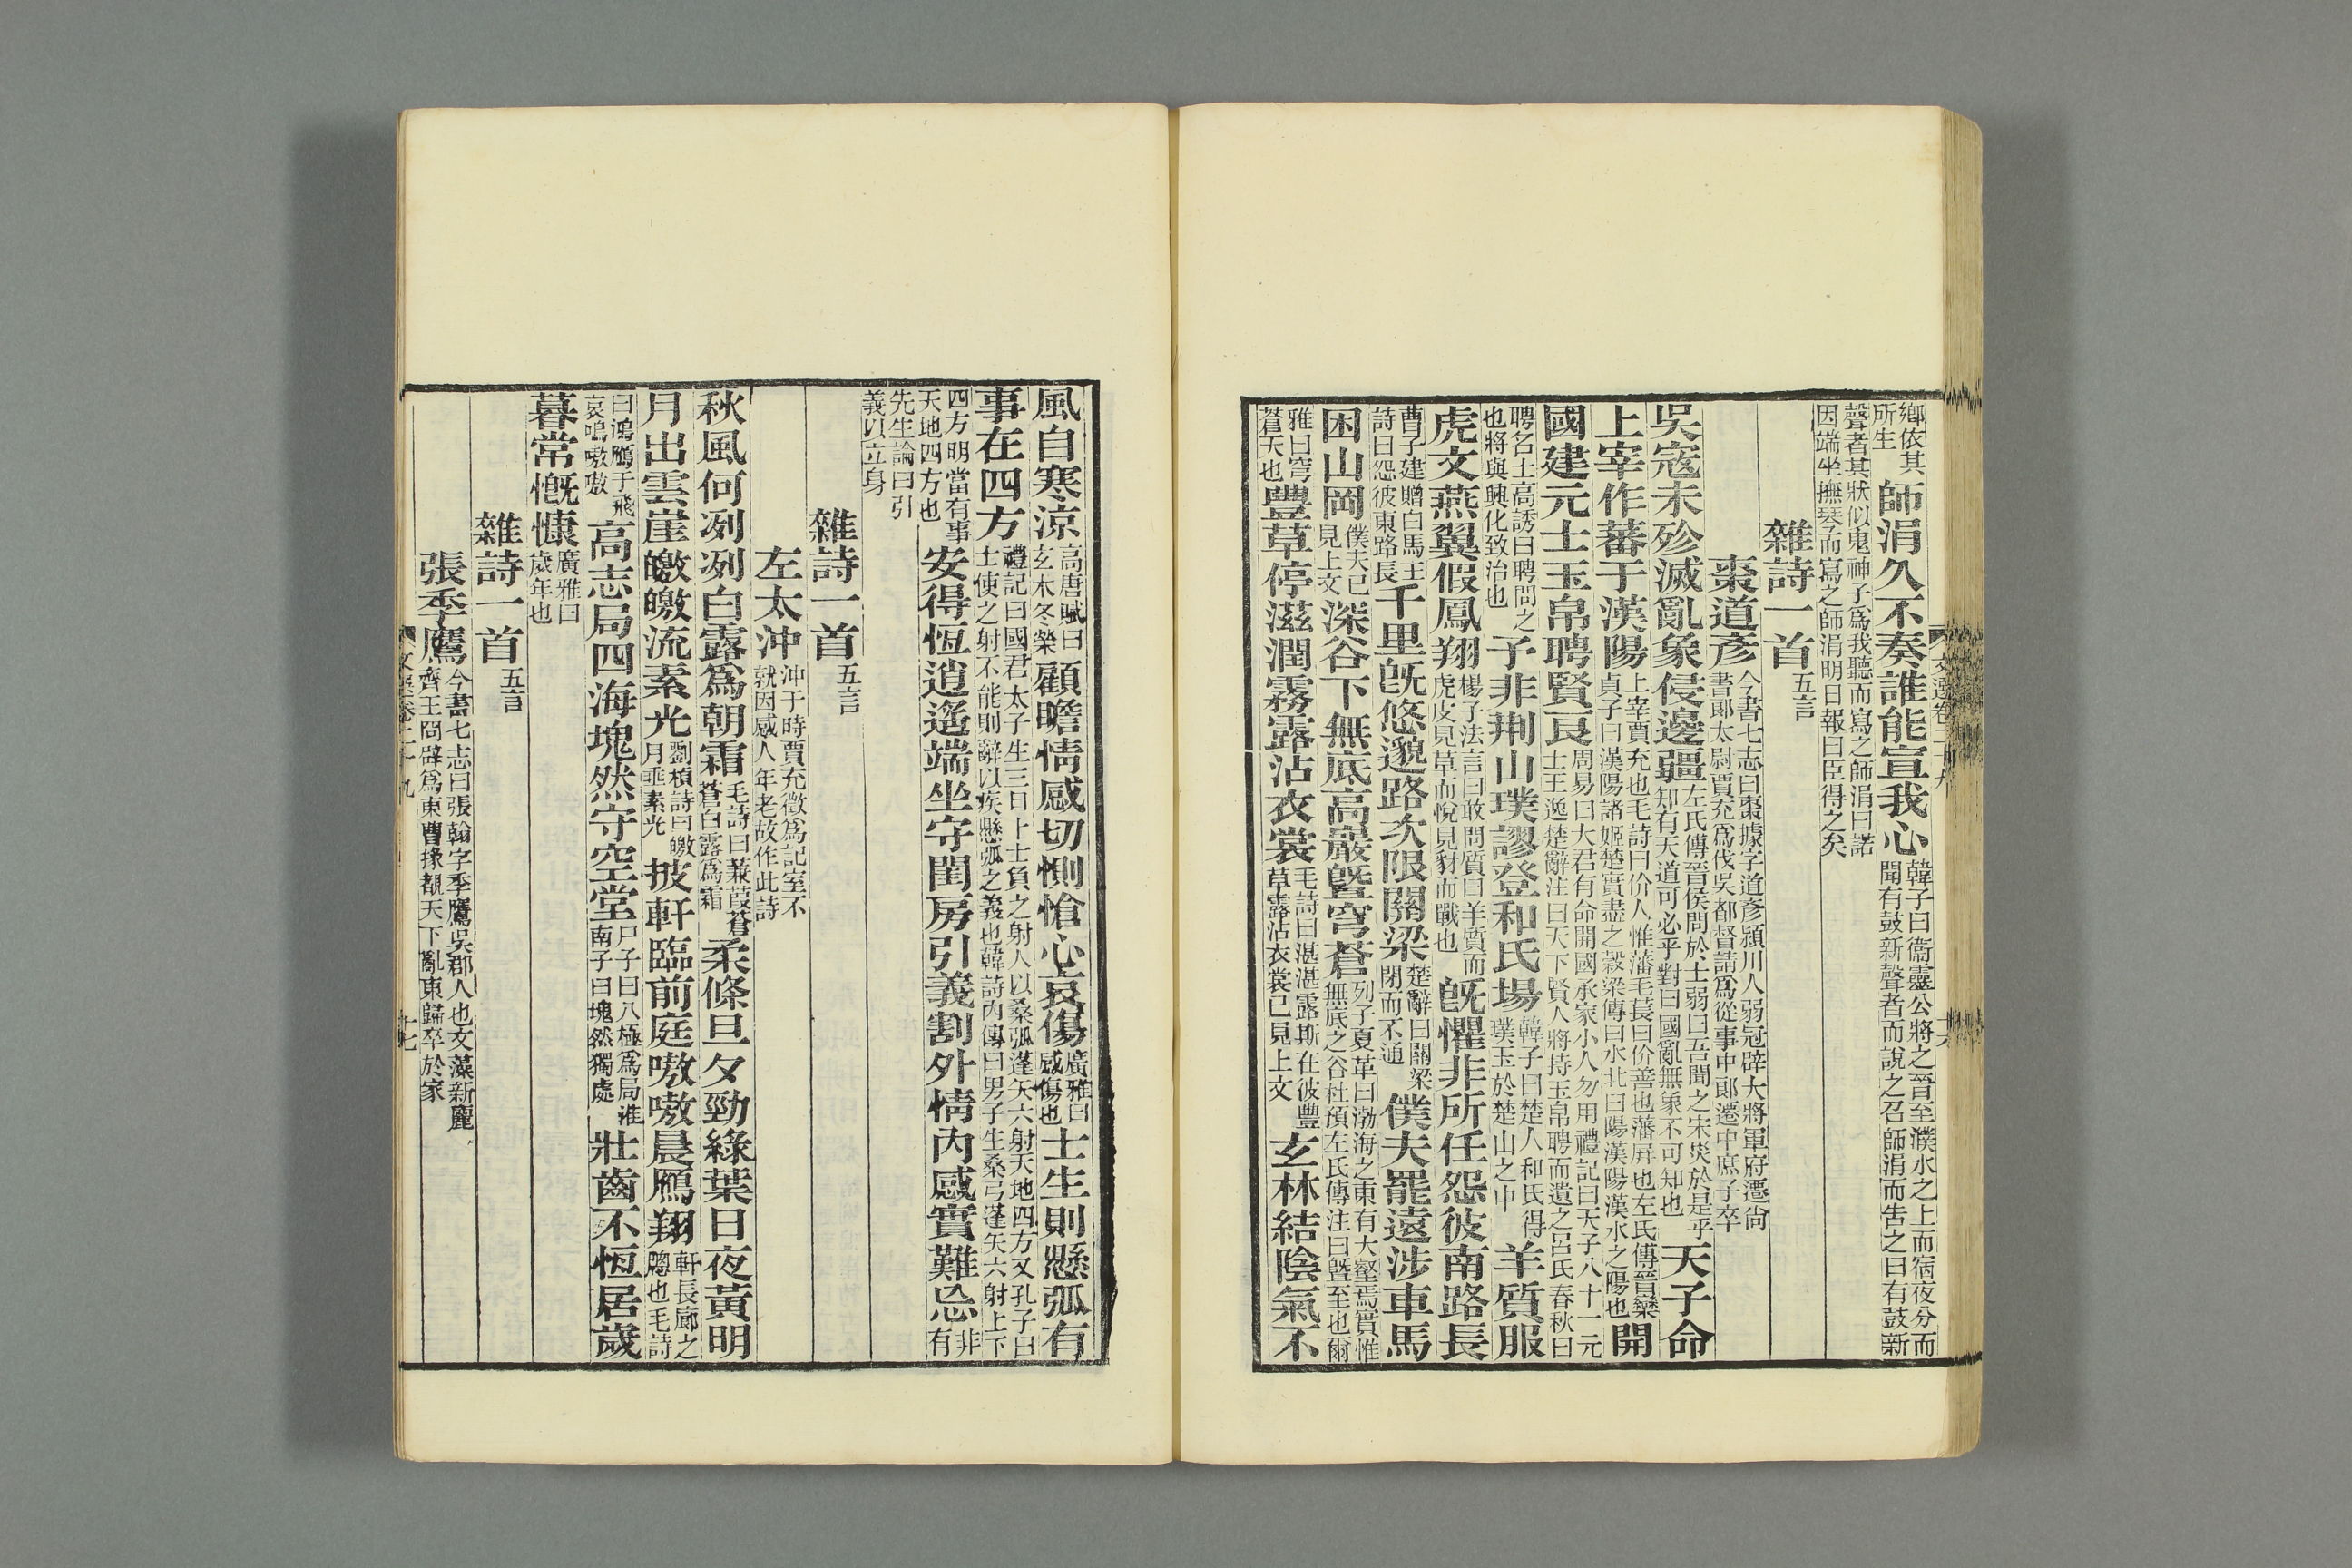 鄉依其所生師涓久不奏誰能宣我心韓子曰衞靈公將之晉至濮水之上而宿夜分而聞有鼓新聲者而說之召師涓而告之曰有鼓新
聲者其狀似鬼神子爲我聽而寫之師涓曰諾因端坐撫琴而寫之師涓明日報曰臣得之矣
雜詩一首五言
棗道彥今書七志曰棗據字道彥潁川人弱冠辟大將軍府遷尚書郞太尉賈充爲伐吳都督請爲從事中郞遷中庶子卒
吳寇未殄滅亂象侵邊疆左氏傳晉侯問於士弱曰吾聞之宋災於是乎知有天道可必乎對曰國亂無象不可知也天子命
上宰作蕃于漢陽上宰賈充也毛詩曰价人惟藩毛萇曰价善也藩屛也左氏傳晉欒貞子曰漢陽諸姬楚實盡之穀梁傳曰水北曰陽漢陽漢水之陽也開
國建元士玉帛聘賢良周易曰大君有命開國承家小人勿用禮記曰天子八十一元士王逸楚辭注曰天下賢人將持玉帛聘而遺之呂氏春秋曰
聘名士高誘曰聘問之也將與興化致治也予非荆山璞謬登和氏場韓子曰楚人和氏得璞玉於楚山之中羊質服
虎文燕翼假鳳翔楊子法言曰敢問質曰羊質而虎皮見草而悅見豺而戰也旣懼非所任怨彼南路長
曹子建贈白馬王詩曰怨彼東路長千里旣悠邈路次限關梁楚辭曰關梁閉而不通僕夫罷遠涉車馬
困山岡僕夫已見上文深谷下無底高巖暨穹蒼列子夏革曰渤海之東有大壑焉實惟無底之谷杜預左氏傳注曰暨至也爾
雅曰穹蒼天也豐草停滋潤霧露沾衣裳毛詩曰湛湛露斯在彼豐草露沾衣裳已見上文玄林結陰氣不
風自寒涼高唐賦曰玄木冬榮顧瞻情感切惻愴心哀傷廣雅曰感傷也士生則懸弧有
事在四方禮記曰國君太子生三日卜士負之射人以桑弧蓬矢六射天地四方又孔子曰士使之射不能則辭以疾懸弧之義也韓詩內傳曰男子生桑弓蓬矢六射上下
四方明當有事天地四方也安得恆逍遙端坐守閨房引義割外情內感實難忘非有
先生論曰引義以立身
雜詩一首五言
左太沖沖于時賈充徵爲記室不就因感人年老故作此詩
秋風何冽冽白露爲朝霜毛詩曰蒹葭蒼蒼白露爲霜柔條旦夕勁綠葉日夜黃明
月出雲崖皦皦流素光劉楨詩曰皦月垂素光披軒臨前庭嗷嗷晨鴈翔軒長廊之牕也毛詩
曰鴻鴈于飛哀鳴嗷嗷高志局四海塊然守空堂尸子曰八極爲局淮南子曰塊然獨處壯齒不恆居歲
暮常慨慷廣雅曰歲年也
雜詩一首五言
張季鷹今書七志曰張翰字季鷹吳郡人也文藻新麗齊王冏辟爲東曹掾覩天下亂東歸卒於家
文選卷二十九
十七